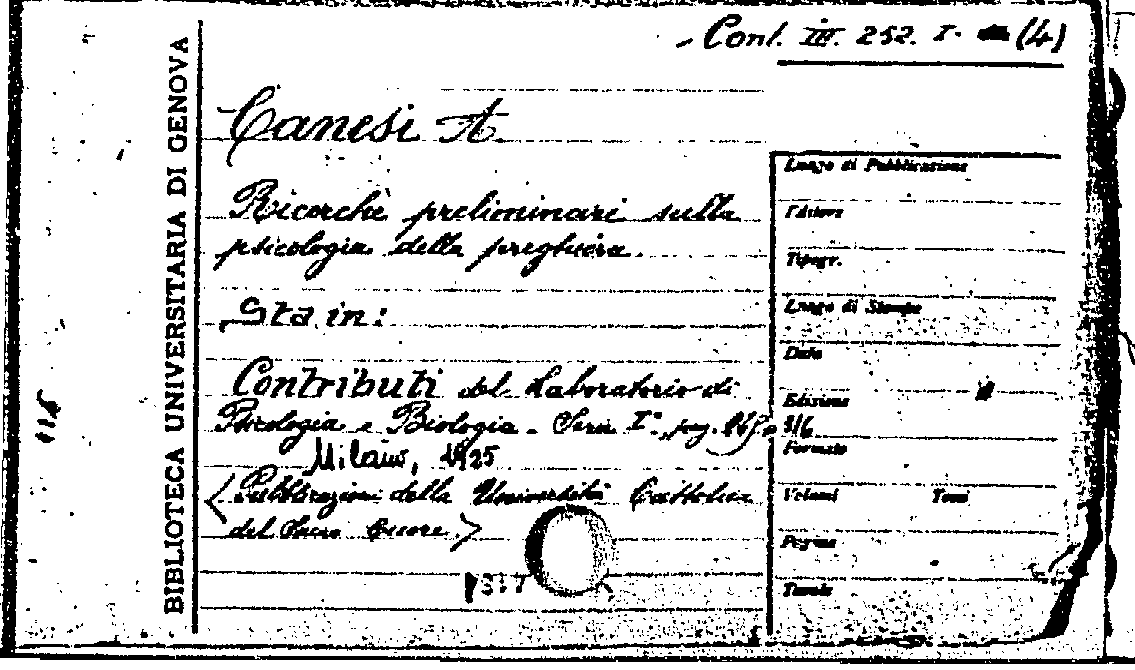 Cont. III. 252. I. (4)
BIBLIOTECA UNIVERSITARIA DI GENOVA
Canesi A.
Ricerche preliminari sulla
psicologia della preghiera.
Sta in:
Contributi del Laboratorio di
Psicologia e Biologia - Serie I°, pag.
Milano, 1925
<Pubblicazioni della Università Cattolica
del Sacro Cuore>
Luogo di Pubblicazione
Editore
Tipogr.
Luogo di Stampa
Data
Edizione
Formato
Volumi Tomi
Pagine
Tavole